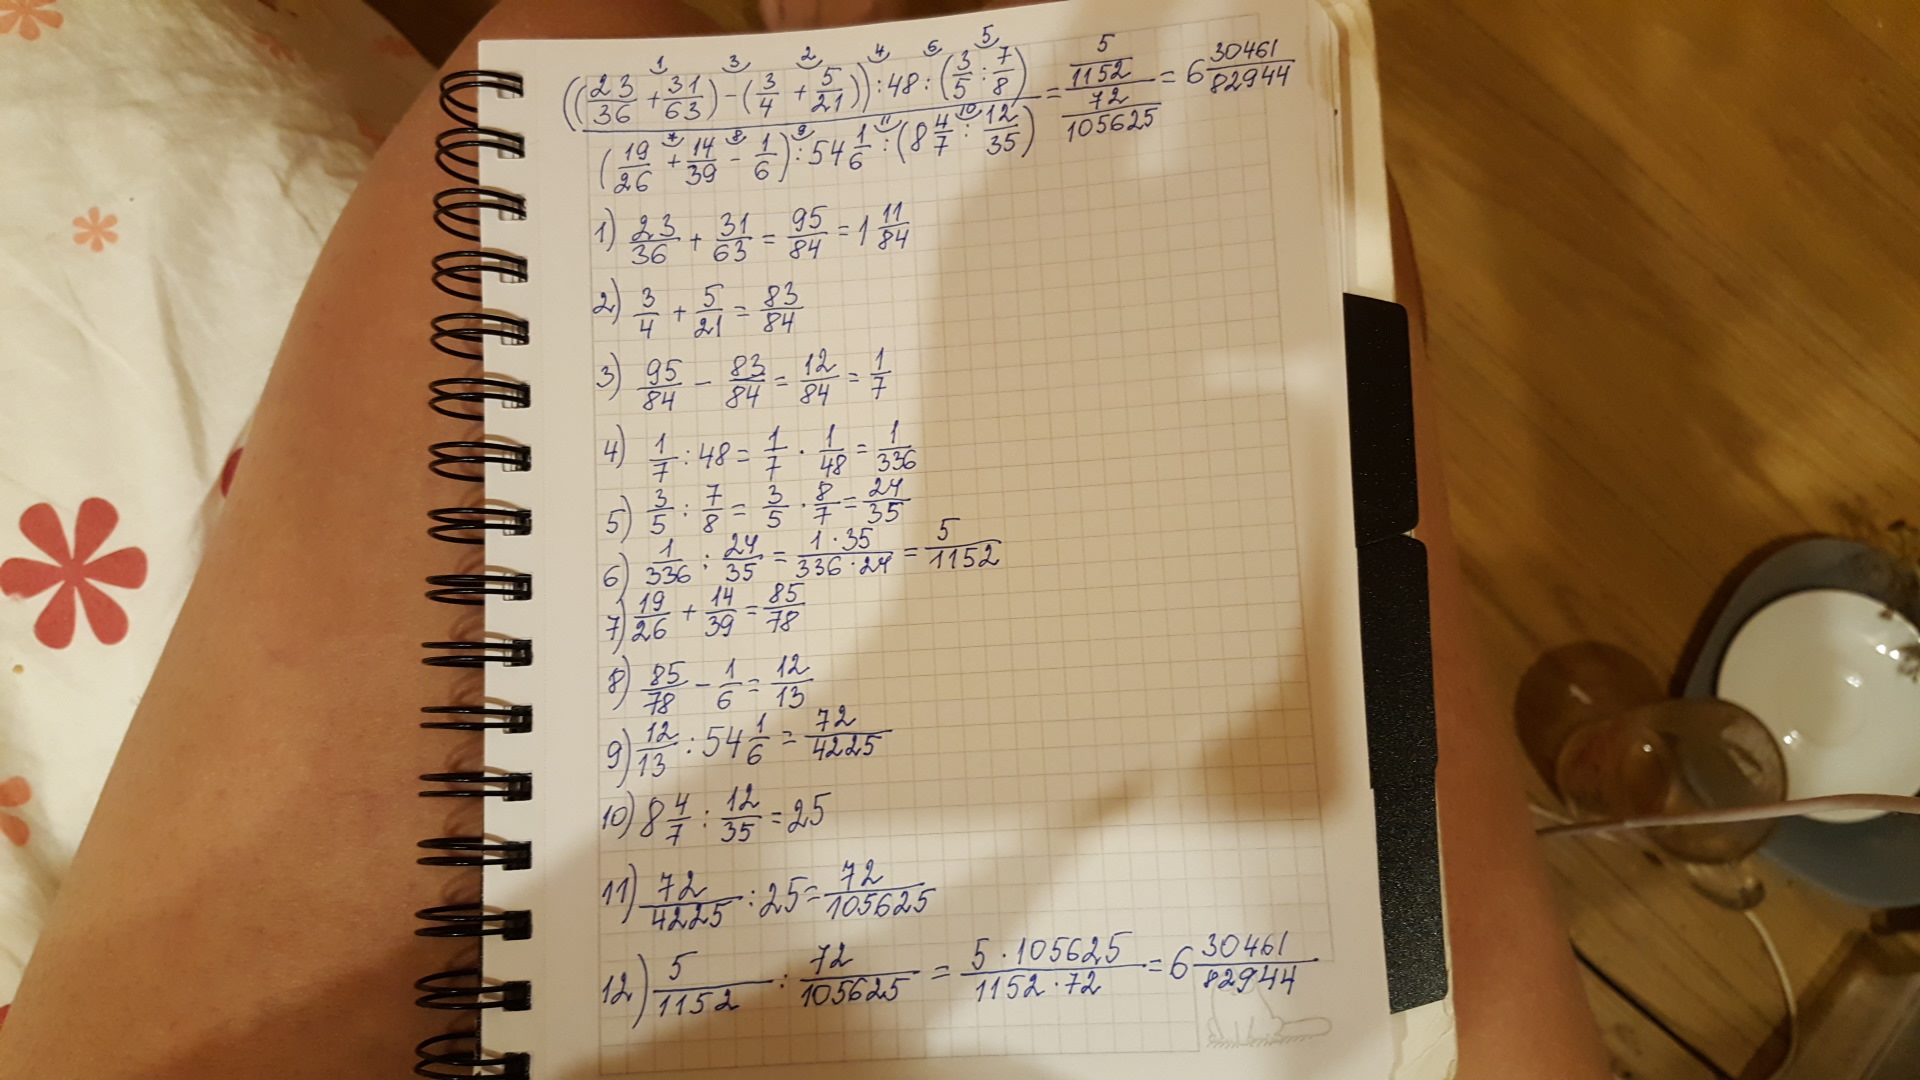 ((23/36 + 31/63) - (3/4 + 5/21)) : 48 : (3/5 : 7/8) / (19/26 + 14/39 - 1/6) : 54 1/6 : (8 4/7 : 12/35) = 5/1152 / 72/105625 = 6 30461/82944
1) 23/36 + 31/63 = 95/84 = 1 11/84
2) 3/4 + 5/21 = 83/84
3) 95/84 - 83/84 = 12/84 = 1/7
4) 1/7 : 48 = 1/7 · 1/48 = 1/336
5) 3/5 : 7/8 = 3/5 · 8/7 = 24/35
6) 1/336 : 24/35 = 1·35/336·24 = 5/1152
7) 19/26 + 14/39 = 85/78
8) 85/78 - 1/6 = 12/13
9) 12/13 : 54 1/6 = 72/4225
10) 8 4/7 : 12/35 = 25
11) 72/4225 : 25 = 72/105625
12) 5/1152 : 72/105625 = 5·105625/1152·72 = 6 30461/82944